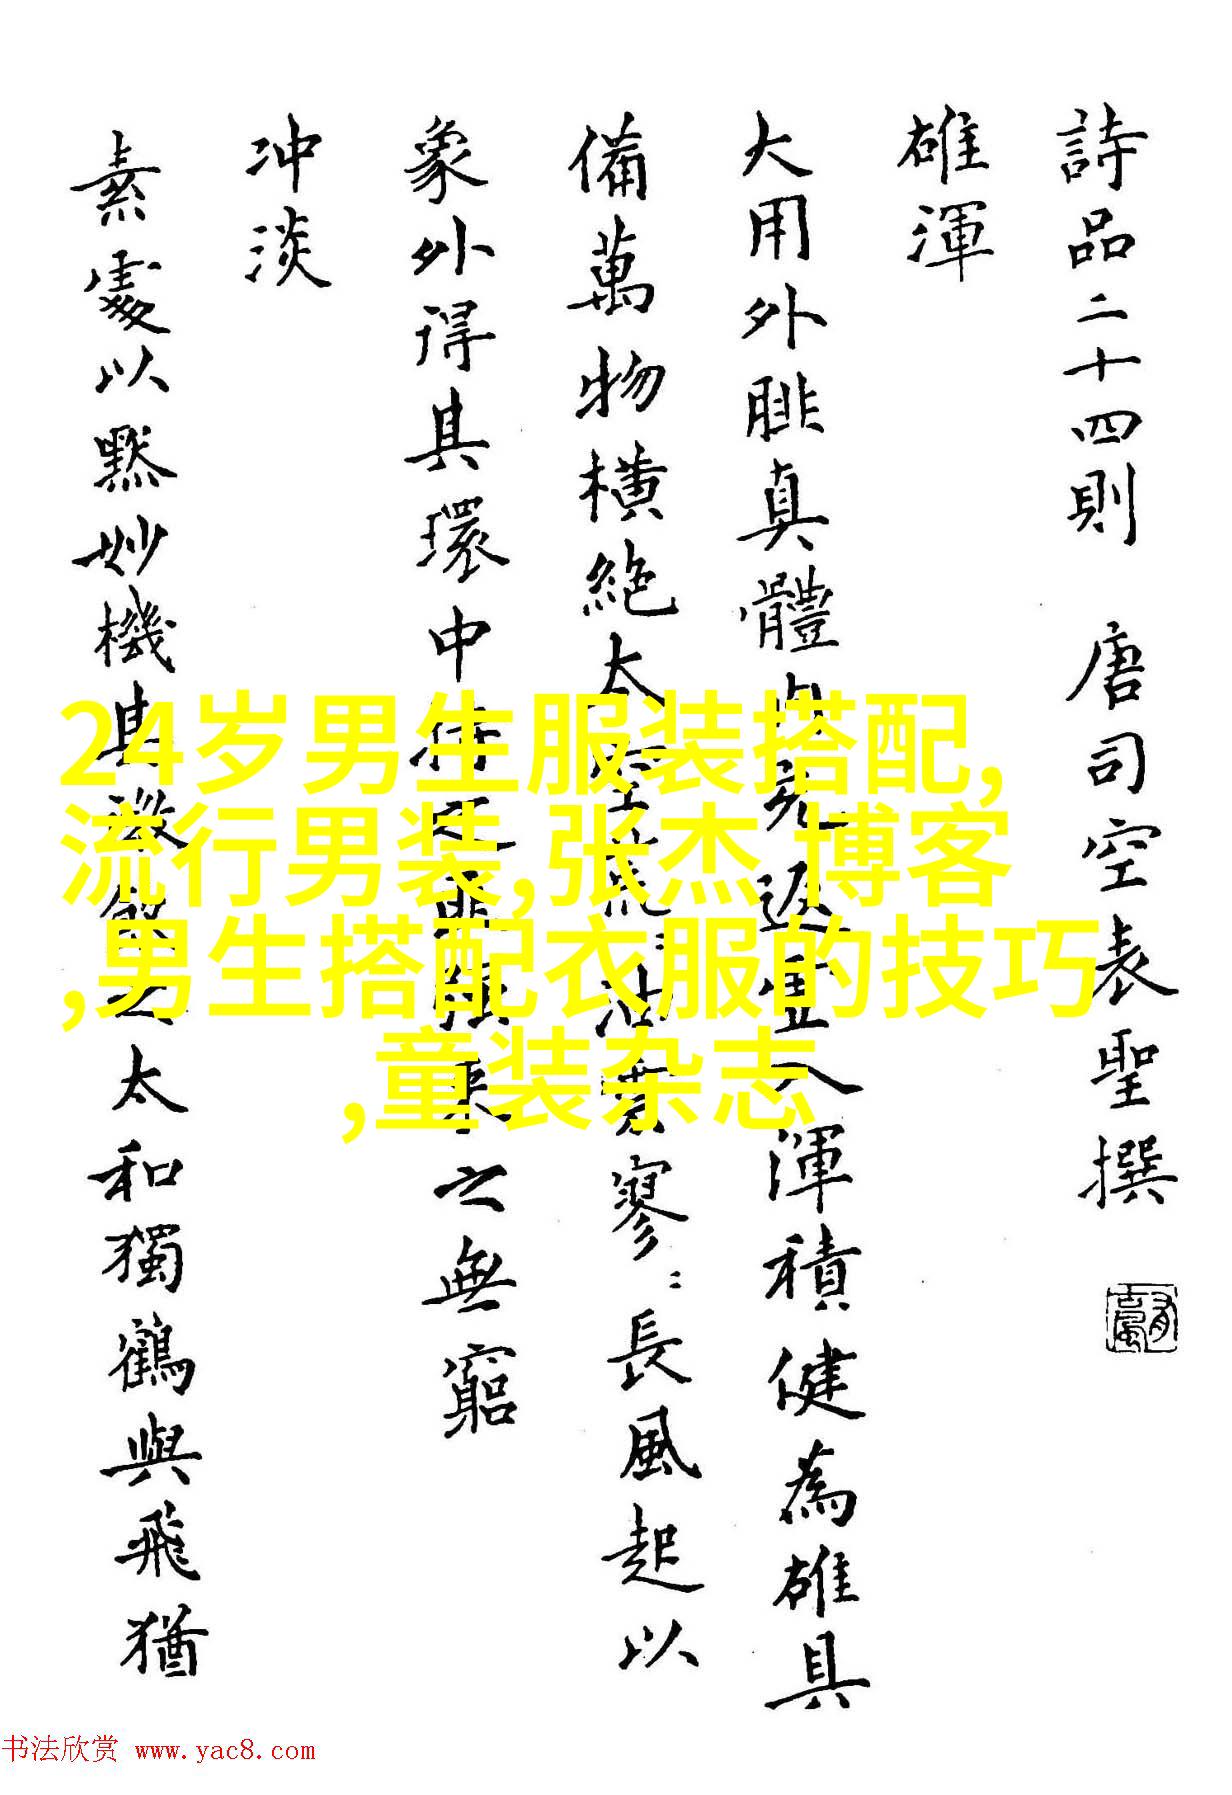 詩品二十四則 唐司空表聖撰
雄渾
大用外腓真體內充返虛入渾積健為雄具
備萬物橫絕太空荒荒油雲寥：長風起以
象外得其環中持之匪強來之無窮
冲淡
素處以默妙機其微飲之太和獨鶴與飛猶
24岁男生服装搭配,
流行男装,张杰 博客
,男生搭配衣服的技巧
,童装杂志
书法欣赏 www.yac8.com